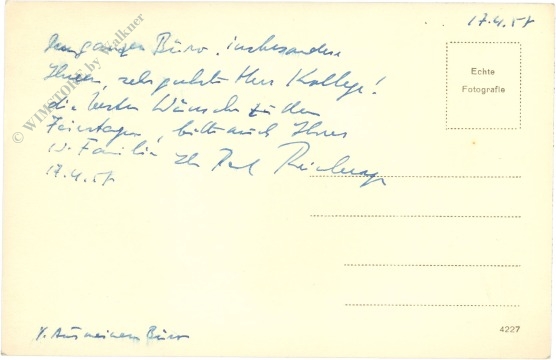 17.4.57
Dem ganzen Büro, insbesondere
Ihnen, sehr geehrter Herr Kollege!
die besten Wünsche zu den
Feiertagen, bitte auch Ihrer
w. Familie Ihr
17.4.57
Echte
Fotografie
© WIMSTORE by Walkner
V. Aus meinem Büro
4227